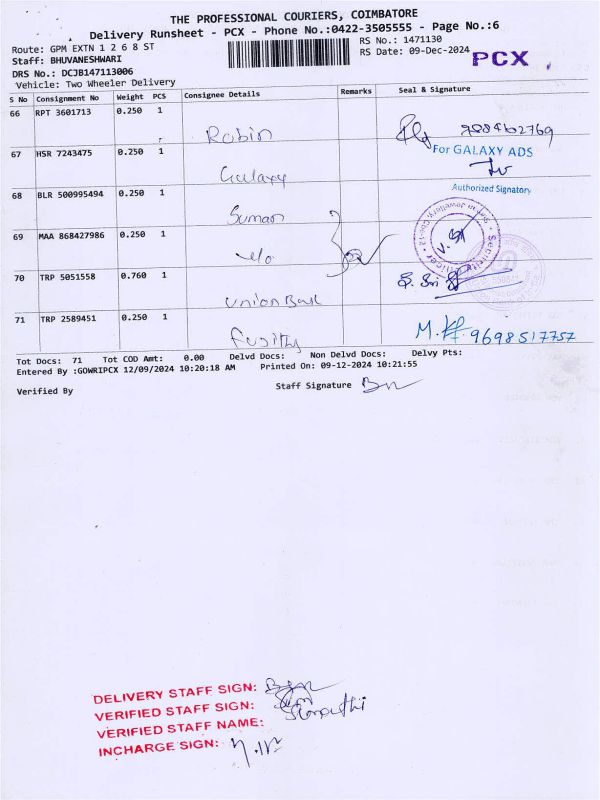 THE PROFESSIONAL COURIERS, COIMBATORE
Delivery Runsheet - PCX - Phone No.:0422-3505555 - Page No.:6
Route: GPM EXTN 1 2 6 8 ST
RS No.: 1471130
Staff: BHUVANESHWARI
RS Date: 09-Dec-2024
PCX
DRS No.: DCJB147113006
Vehicle: Two Wheeler Delivery
S No Consignment No Weight PCS Consignee Details Remarks Seal & Signature
66 RPT 3601713 0.250 1
Robin
67 HSR 7243475 0.250 1
For GALAXY ADS
Galaxy
Authorized Signatory
68 BLR 500995494 0.250 1
Suman
69 MAA 868427986 0.250 1
70 TRP 5051558 0.760 1
Union Bank
71 TRP 2589451 0.250 1
9698517757
Tot Docs: 71 Tot COD Amt: 0.00 Delvd Docs: Non Delvd Docs: Delvy Pts:
Entered By :GOWRIPCX 12/09/2024 10:20:18 AM Printed On: 09-12-2024 10:21:55
Verified By
Staff Signature
DELIVERY STAFF SIGN:
VERIFIED STAFF SIGN:
VERIFIED STAFF NAME:
INCHARGE SIGN: